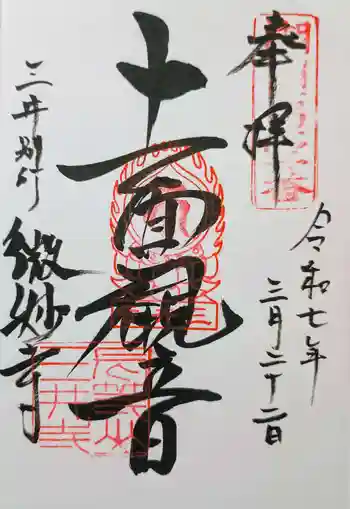 奉拝
令和七年
三月二十二日
十一面観音
三井別所
微妙寺